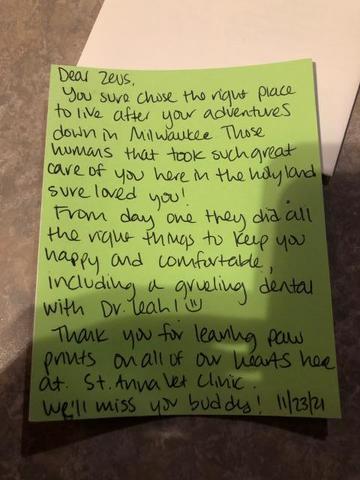 Dear Zeus,
You sure chose the right place
to live after your adventures
down in Milwaukee Those
humans that took such great
care of you here in the holyland
sure loved you!
From day one they did all
the right things to keep you
happy and comfortable,
including a grueling dental
with Dr. Leah! ☺
Thank you for leaving paw
prints on all of our hearts here
at St. Anna Vet Clinic.
We'll miss you buddy! 11/23/21